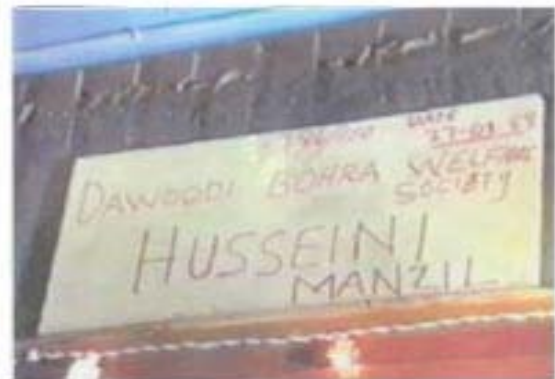 DATE
27-03-89
DAWOODI BOHRA WELFARE
SOCIETY
HUSSEINI
MANZIL